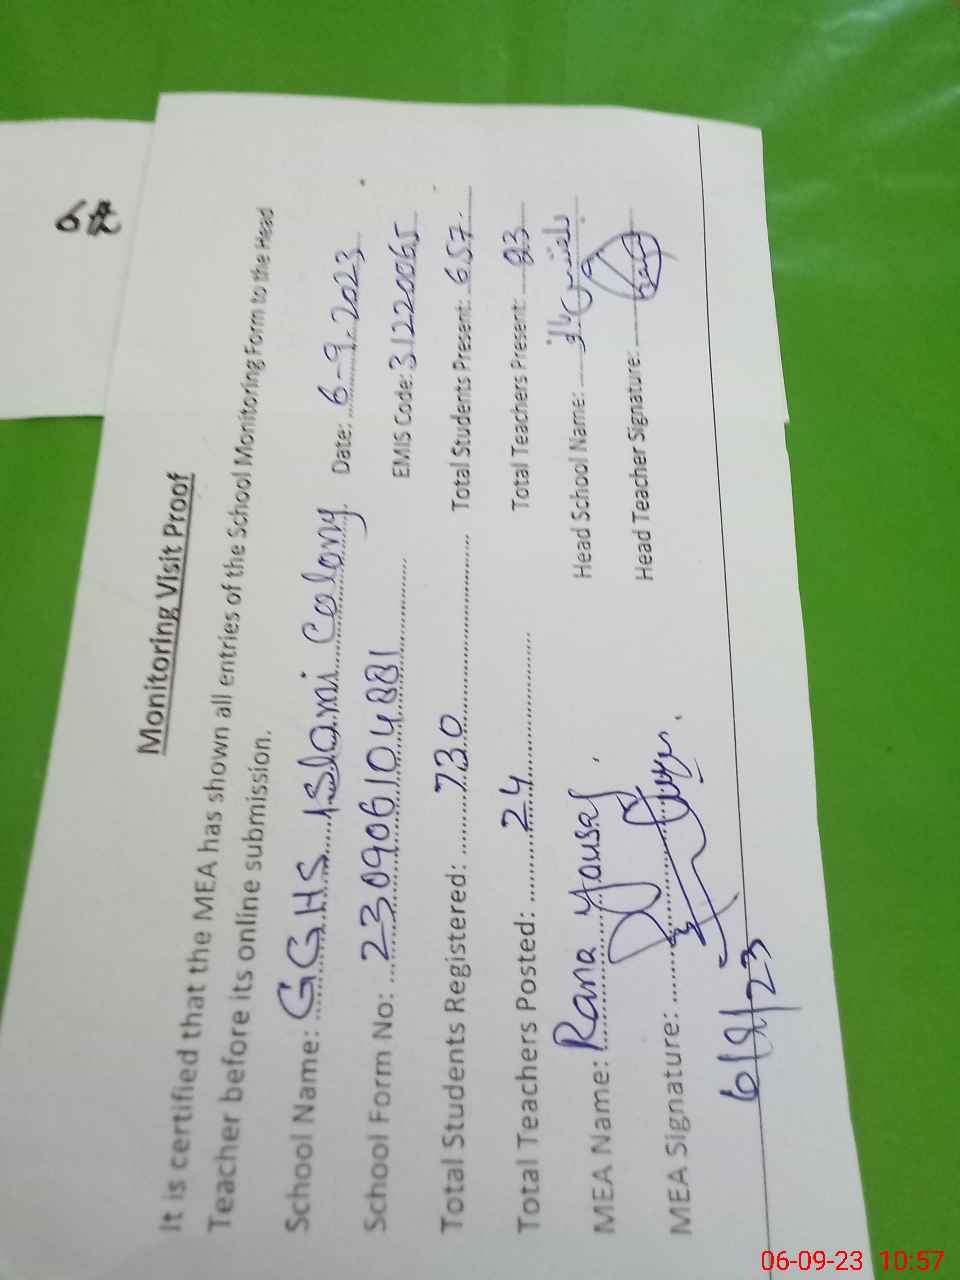 Monitoring Visit Proof
It is certified that the MEA has shown all entries of the School Monitoring Form to the Head
Teacher before its online submission.
School Name: GGHS Islami Colony Date: 6-9-2023
School Form No: 230906104881 EMIS Code: 31220065
Total Students Registered: 730 Total Students Present: 657
Total Teachers Posted: 24 Total Teachers Present: 23
MEA Name: Rana Yousaf Head School Name:
MEA Signature: Head Teacher Signature:
6/9/23
06-09-23 10:57